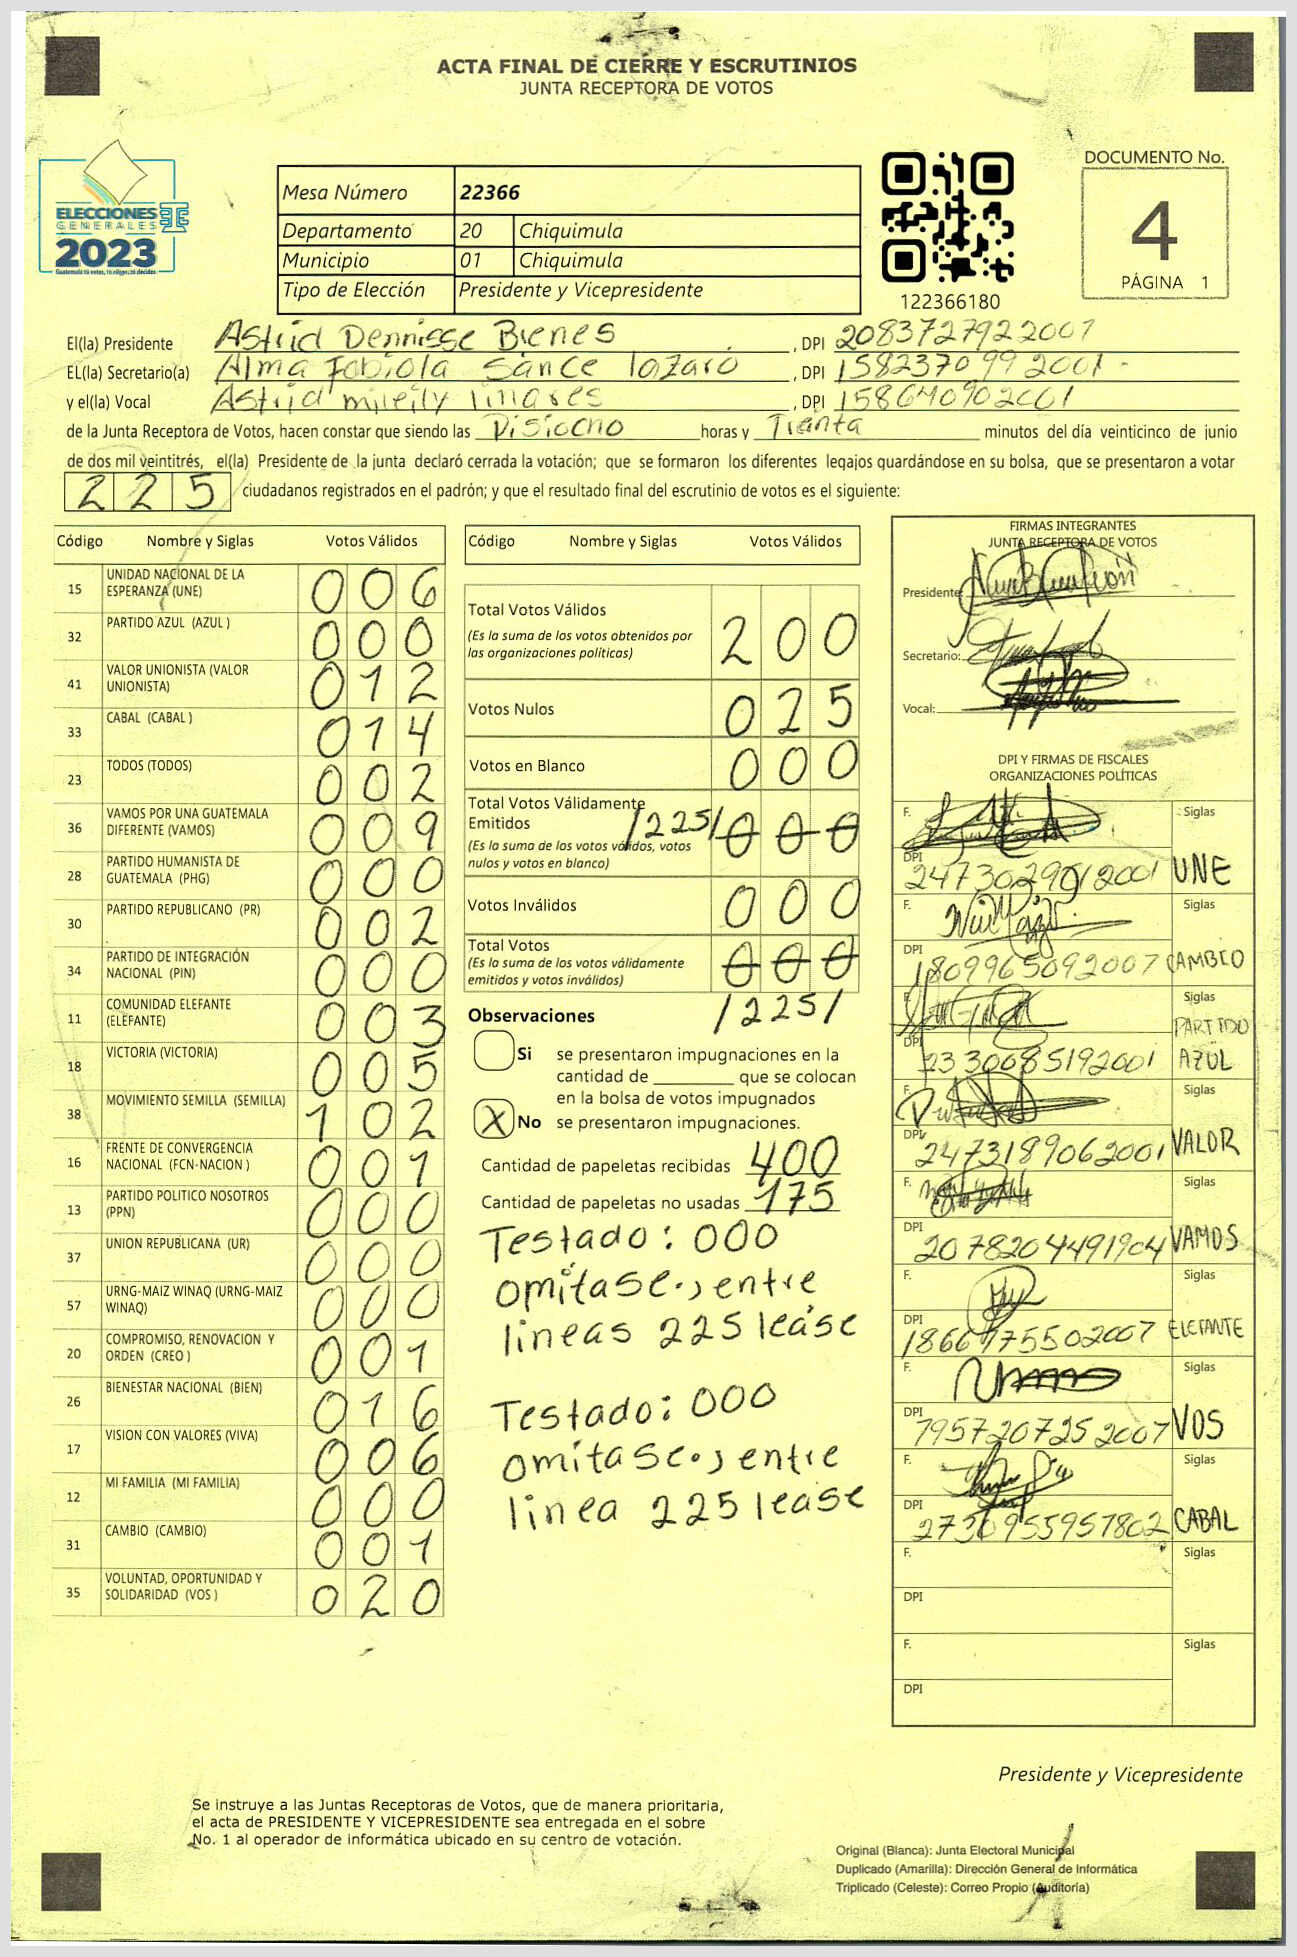 ACTA FINAL DE CIERRE Y ESCRUTINIOS
JUNTA RECEPTORA DE VOTOS
ELECCIONES
GENERALES
2023
Guatemala tú votas, tú eliges, tú decides
Mesa Número 22366
Departamento 20 Chiquimula
Municipio 01 Chiquimula
Tipo de Elección Presidente y Vicepresidente
122366180
DOCUMENTO No.
4
PÁGINA 1
El(la) Presidente Astrid Dennisse Bienes , DPI 2083727922001
EL(la) Secretario(a) Alma Fabiola Sance lazaro , DPI 1582370992001
y el(la) Vocal Astrid mileily linares , DPI 158640902001
de la Junta Receptora de Votos, hacen constar que siendo las Disiocho horas y Trienta minutos del día veinticinco de junio
de dos mil veintitrés, el(la) Presidente de la junta declaró cerrada la votación; que se formaron los diferentes legajos guardándose en su bolsa, que se presentaron a votar
225 ciudadanos registrados en el padrón; y que el resultado final del escrutinio de votos es el siguiente:
Código Nombre y Siglas Votos Válidos
15 UNIDAD NACIONAL DE LA ESPERANZA (UNE) 006
32 PARTIDO AZUL (AZUL ) 000
41 VALOR UNIONISTA (VALOR UNIONISTA) 012
33 CABAL (CABAL ) 014
23 TODOS (TODOS) 002
36 VAMOS POR UNA GUATEMALA DIFERENTE (VAMOS) 009
28 PARTIDO HUMANISTA DE GUATEMALA (PHG) 000
30 PARTIDO REPUBLICANO (PR) 002
34 PARTIDO DE INTEGRACIÓN NACIONAL (PIN) 000
11 COMUNIDAD ELEFANTE (ELEFANTE) 003
18 VICTORIA (VICTORIA) 005
38 MOVIMIENTO SEMILLA (SEMILLA) 102
16 FRENTE DE CONVERGENCIA NACIONAL (FCN-NACION ) 001
13 PARTIDO POLITICO NOSOTROS (PPN) 000
37 UNION REPUBLICANA (UR) 000
57 URNG-MAIZ WINAQ (URNG-MAIZ WINAQ) 000
20 COMPROMISO, RENOVACION Y ORDEN (CREO ) 001
26 BIENESTAR NACIONAL (BIEN) 016
17 VISION CON VALORES (VIVA) 006
12 MI FAMILIA (MI FAMILIA) 000
31 CAMBIO (CAMBIO) 001
35 VOLUNTAD, OPORTUNIDAD Y SOLIDARIDAD (VOS ) 020
Código Nombre y Siglas Votos Válidos
Total Votos Válidos 200
(Es la suma de los votos obtenidos por
las organizaciones políticas)
Votos Nulos 025
Votos en Blanco 000
Total Votos Válidamente
Emitidos /225/ 000
(Es la suma de los votos válidos, votos
nulos y votos en blanco)
Votos Inválidos 000
Total Votos 000
(Es la suma de los votos válidamente
emitidos y votos inválidos)
/225/
Observaciones
Si se presentaron impugnaciones en la
cantidad de ________ que se colocan
en la bolsa de votos impugnados
X No se presentaron impugnaciones.
Cantidad de papeletas recibidas 400
Cantidad de papeletas no usadas 175
Testado: 000
omitase., entre
lineas 225 lease
Testado: 000
omitase., entre
linea 225 lease
FIRMAS INTEGRANTES
JUNTA RECEPTORA DE VOTOS
Presidente:
Secretario:
Vocal:
DPI Y FIRMAS DE FISCALES
ORGANIZACIONES POLÍTICAS
F. Siglas
DPI 2473029012001 UNE
F. Siglas
DPI 1809965092007 CAMBIO
F. Siglas
DPI 2330085192001 PARTIDO AZUL
F. Siglas
DPI 2473189062001 VALOR
F. Siglas
DPI 2078204491904 VAMOS
F. Siglas
DPI 1866975502007 ELEFANTE
F. Siglas
DPI 7957207252007 VOS
F. Siglas
DPI 2730955951802 CABAL
F. Siglas
DPI
F. Siglas
DPI
Presidente y Vicepresidente
Se instruye a las Juntas Receptoras de Votos, que de manera prioritaria,
el acta de PRESIDENTE Y VICEPRESIDENTE sea entregada en el sobre
No. 1 al operador de informática ubicado en su centro de votación.
Original (Blanca): Junta Electoral Municipal
Duplicado (Amarilla): Dirección General de Informática
Triplicado (Celeste): Correo Propio (Auditoría)